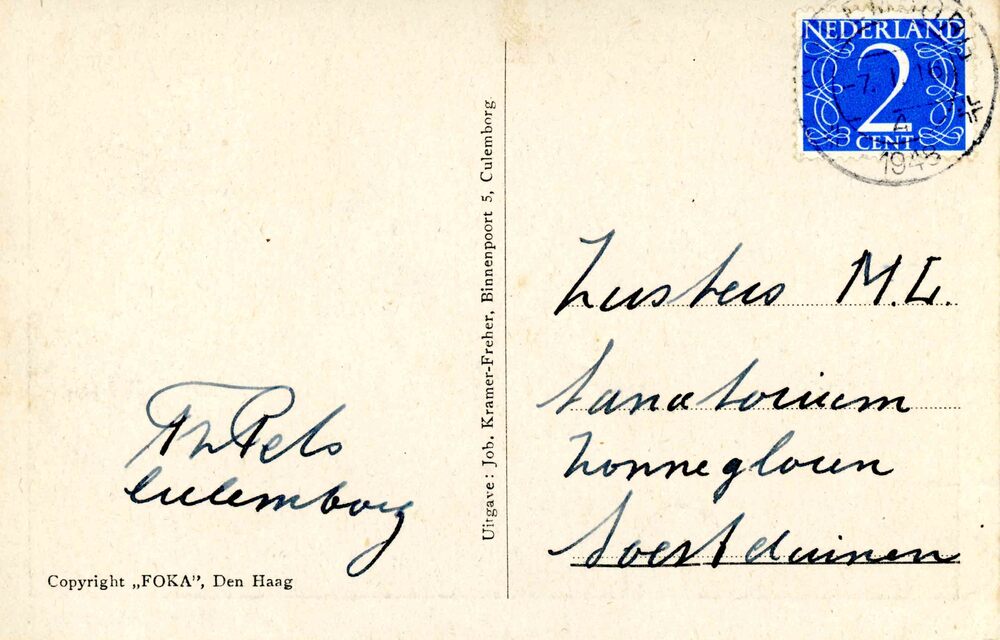 NEDERLAND
2
CENT
-7. 1. 16
1948
Zusters M.L.
Sanatorium
Zonnegloren
Soestduinen
Th Pels
Culemborg
Uitgave: Job. Kramer-Freher, Binnenpoort 5, Culemborg
Copyright „FOKA”, Den Haag